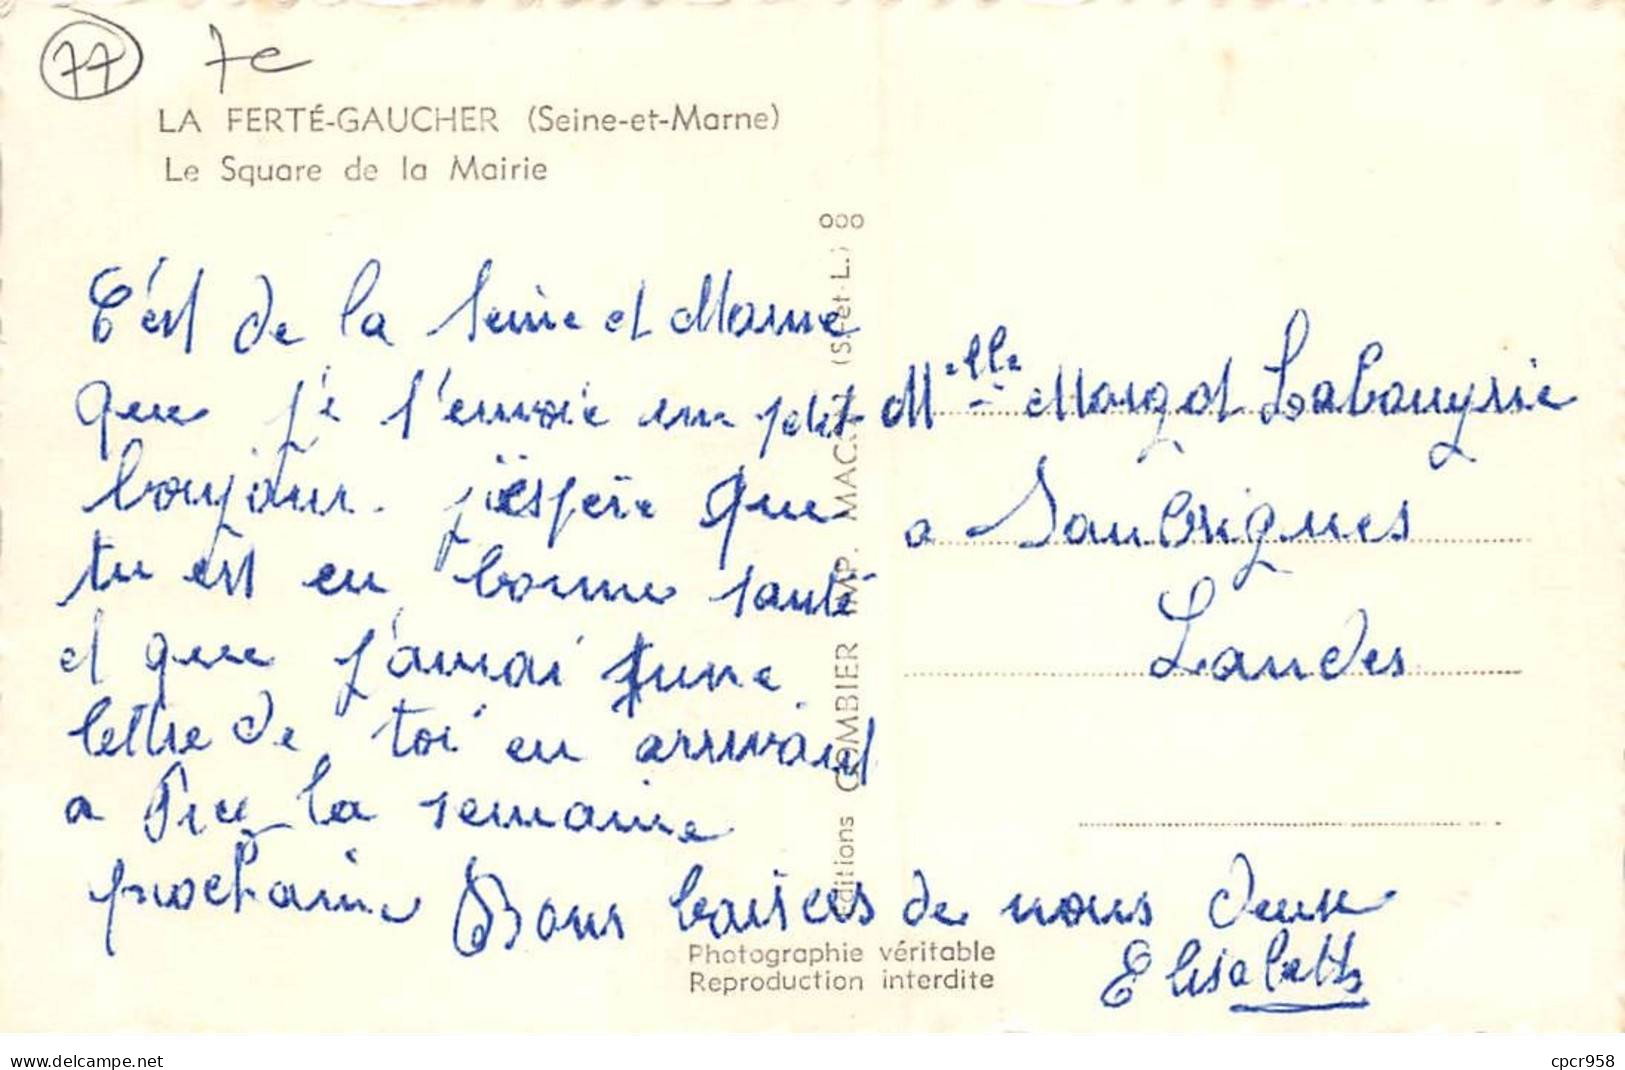 77 7e
LA FERTÉ-GAUCHER (Seine-et-Marne)
Le Square de la Mairie
C'est de la Seine et Marne
que je t'envoie un petit
bonjour. j'espère que
tu est en bonne santé
et que j'aurai une
lettre de toi en arrivant
a la semaine
prochaine Bons baisers de nous deux
Elisabeth
Melle Margot Labauyrie
a Saubrigues
Landes
Editions COMBIER IMP. MACON (S.-et-L.)
Photographie véritable
Reproduction interdite
www.delcampe.net
cpcr958